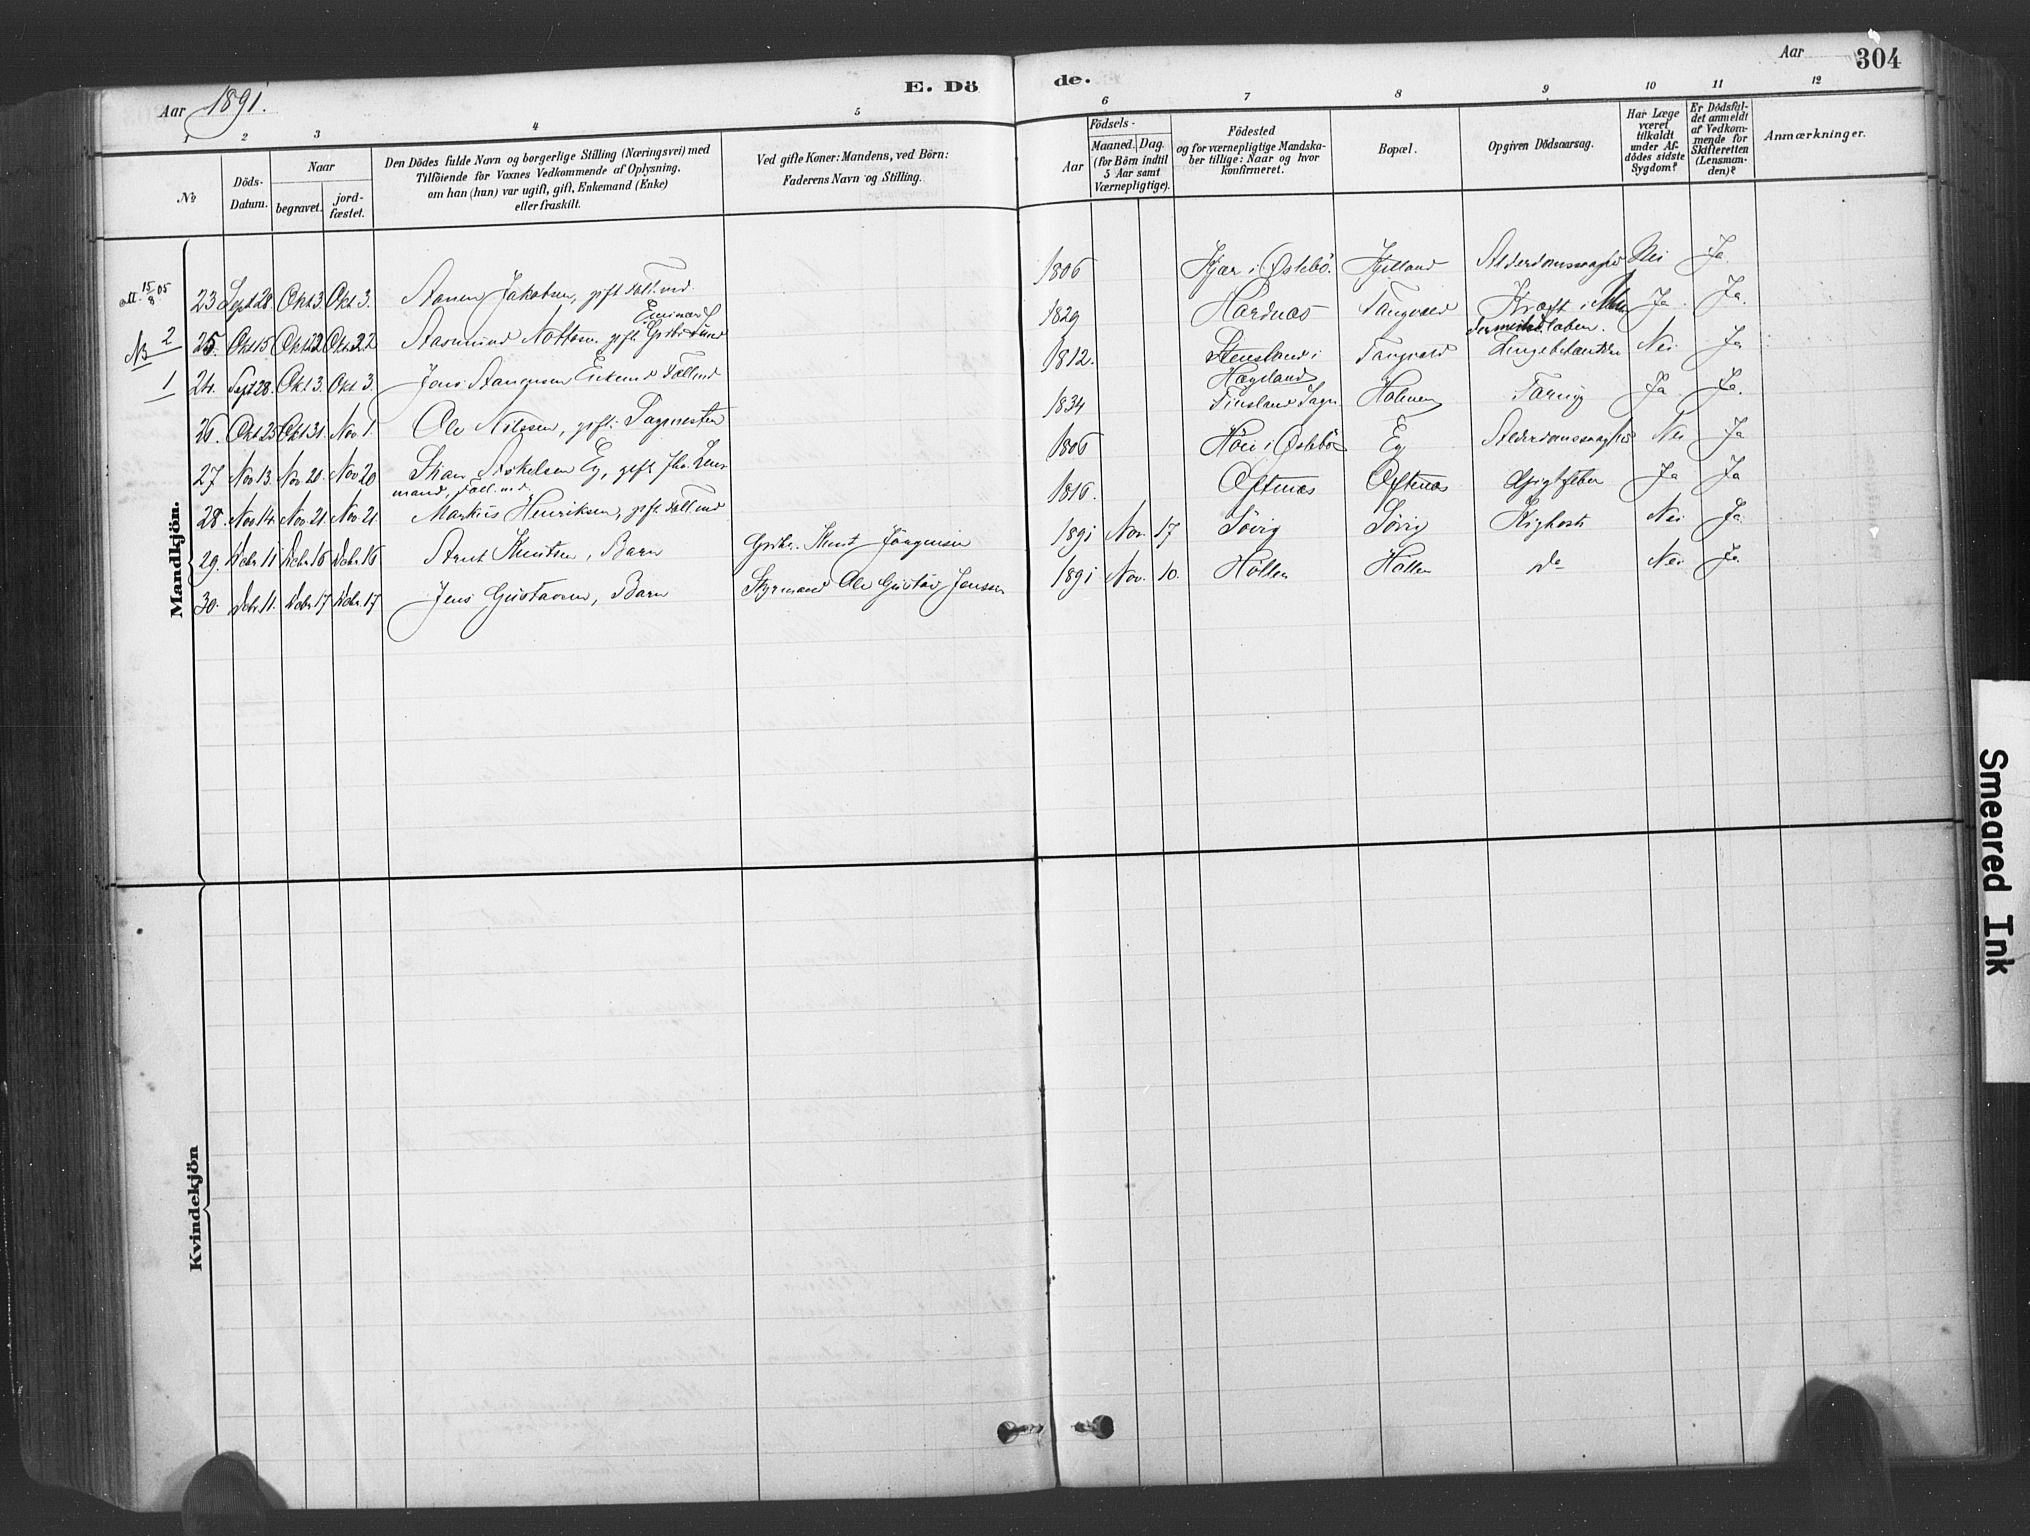 Aar 1891.
E. Döde.
Aar
304
1 2 3 4 5 6 7 8 9 10 11 12
No
Döds-Datum.
Naar
begravet.
jord-fæstet.
Den Dödes fulde Navn og borgerlige Stilling (Næringsvei) med
Tilföiende for Voxnes Vedkommende af Oplysning,
om han (hun) var ugift, gift, Enkemand (Enke)
eller fraskilt.
Ved gifte Koner: Mandens, ved Börn:
Faderens Navn og Stilling.
Aar
Födsels-
Maaned. Dag.
(for Börn indtil
5 Aar samt
Værnepligtige).
Födested
og for værnepligtige Mandska-
ber tillige: Naar og hvor
konfirmeret.
Bopæl.
Opgiven Dödsaarsag.
Har Læge
været
tilkaldt
under Af-
dödes sidste
Sygdom?
Er Dödsfal-
det anmeldt
af Vedkom-
mende for
Skifteretten
(Lensman-
den)?
Anmærkninger.
Mandkjön.
15/8 05
23 Sept 28. Okt 3. Okt 3. Aanen Jakobsen, gift Fattlind. 1806 Kjær i Østebö. Kjelland Alderdomssvaghed Nei Ja
NB 2
25. Okt 15 Okt 22 Okt 22 Aasmund gift 1829 Hardnes Tangvald Kræft i Ja Ja.
1
24. Sept 28. Okt 3. Okt 3. Jens Aanensen Enkemd Fattlind 1812. Stensland i Hægeland Tangvald Lungebetændelse Nei Ja
26. Okt 25 Okt 31. Nov 1. Ole Nilssen, gift 1834 Finsland Sogn Holmen Tæring Ja Ja.
27 Nov 13. Nov 20. Nov 20 Stian Askelsen Eg, gift fhv. Lens-
mand, Fatt.ind. 1806 Höie i Østebö Eg Alderdomssvaghed Nei Ja
28. Nov 14. Nov. 21. Nov 21. Markus Henriksen, gift Fattlind 1816. Oftenæs Oftenæs Gigtfeber Ja Ja
29. Decbr 11 Decbr 16 Decbr 16 Arnt Knutsen, Barn Gbr. Knut Jörgensen 1891 Nov. 17 Søvig Søvig Kighoste Nei Ja
30. Decbr 11. Decbr 17 Decbr 17 Jens Gustavsen, Barn Styrmand Ole Gustav Jenssen 1891 Nov. 10. Holten Holten do Nei Ja.
Kvindekjön
Smeared Ink